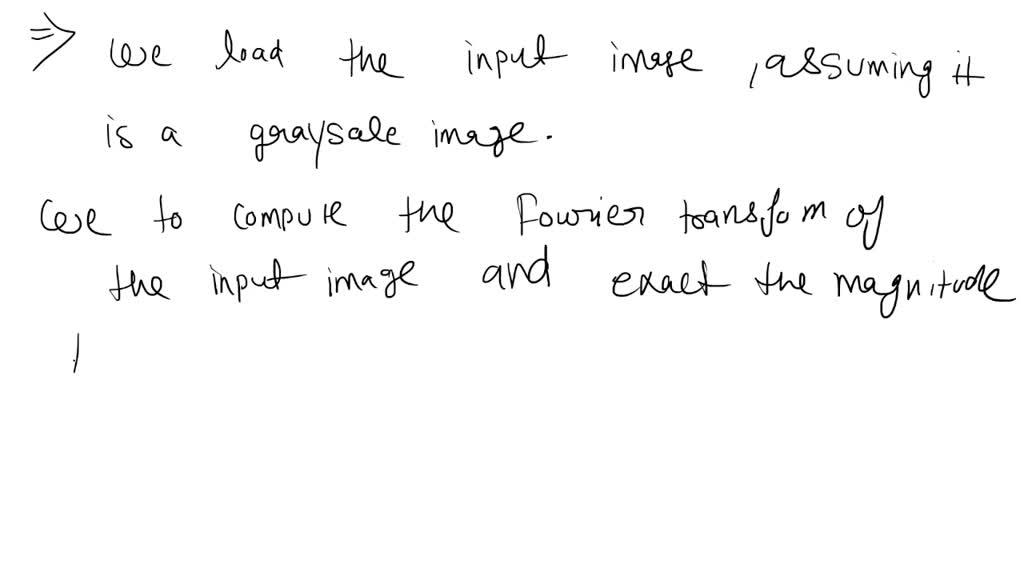 ⇒ we load the input image, assuming it
is a graysale image.
we to compute the Fourier transfom of
the input image and exact the magnitude